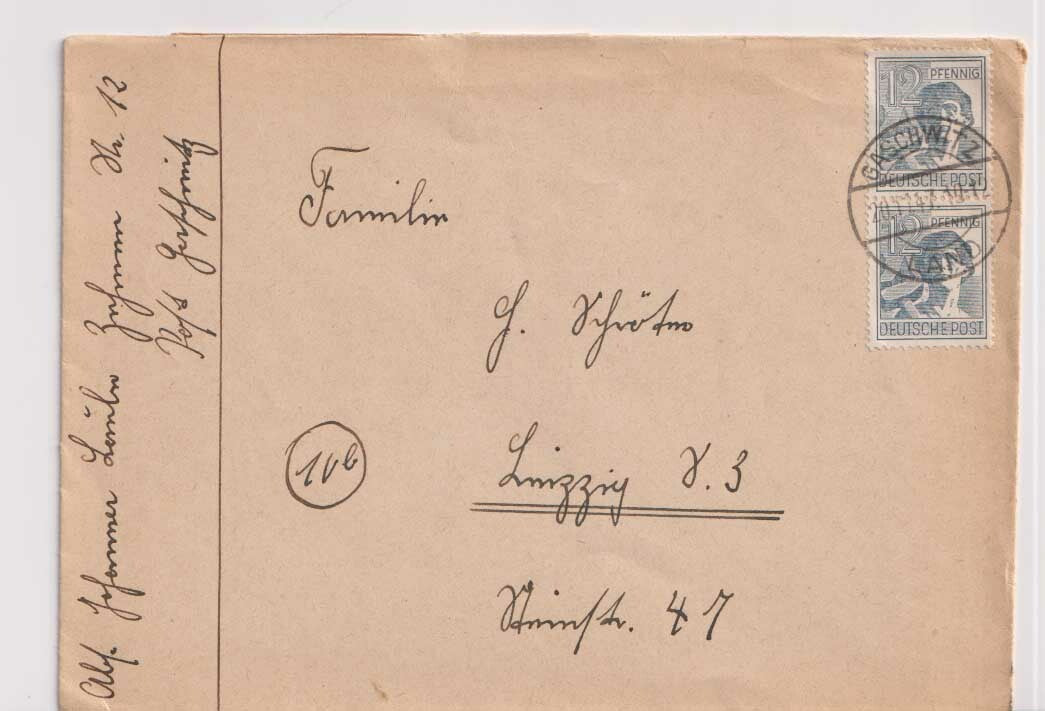 Abs. Johanna Läufer Zehmen Nr. 12
Post Gaschwitz
Familie
H. Schröter
10b
Leipzig S. 3
Steinstr. 47
12 PFENNIG
DEUTSCHE POST
12 PFENNIG
DEUTSCHE POST
GASCHWITZ
LAND